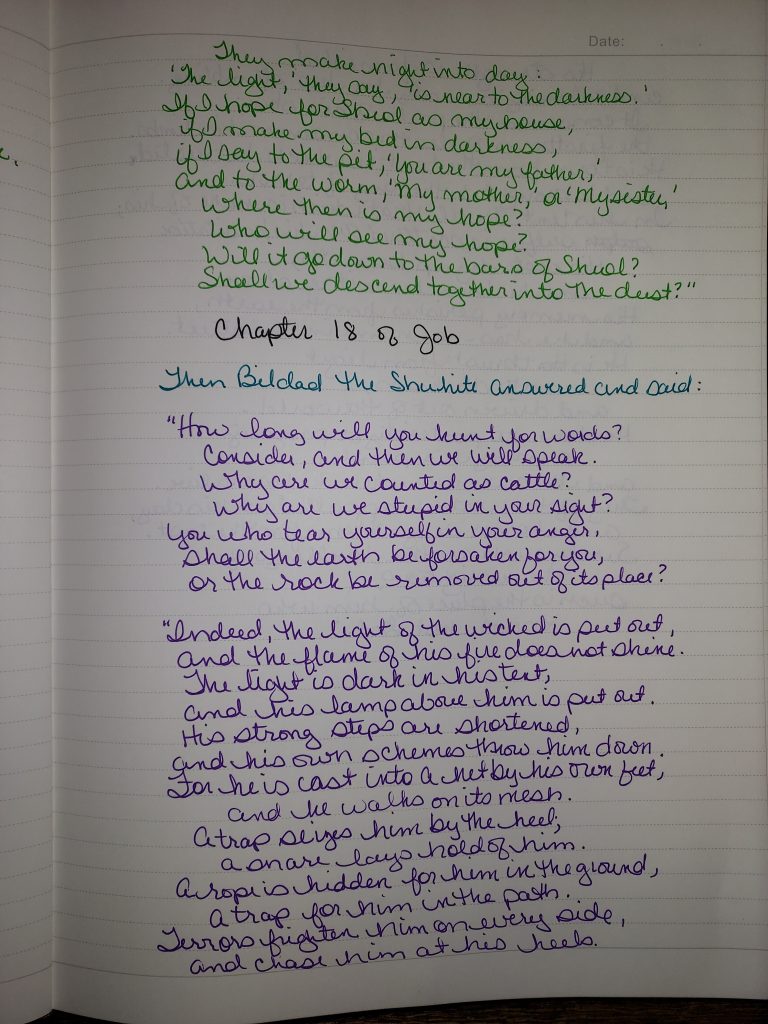 Date:
They make night into day:
'The light,' they say, 'is near to the darkness.'
If I hope for Sheol as my house,
if I make my bed in darkness,
if I say to the pit, 'You are my father,'
and to the worm, 'My mother,' or 'My sister,'
where then is my hope?
Who will see my hope?
Will it go down to the bars of Sheol?
Shall we descend together into the dust?"
Chapter 18 of Job
Then Bildad the Shuhite answered and said:
"How long will you hunt for words?
Consider, and then we will speak.
Why are we counted as cattle?
Why are we stupid in your sight?
You who tear yourself in your anger,
shall the earth be forsaken for you,
or the rock be removed out of its place?
"Indeed, the light of the wicked is put out,
and the flame of his fire does not shine.
The light is dark in his tent,
and his lamp above him is put out.
His strong steps are shortened,
and his own schemes throw him down.
For he is cast into a net by his own feet,
and he walks on its mesh.
A trap seizes him by the heel;
a snare lays hold of him.
A rope is hidden for him in the ground,
a trap for him in the path.
Terrors frighten him on every side,
and chase him at his heels.